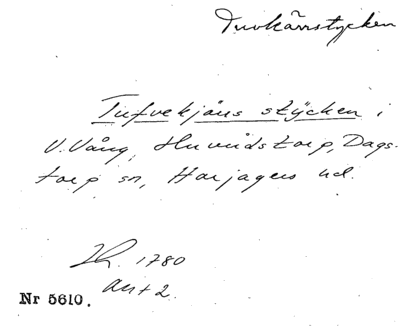 Tuvkärrstycken
Tufvekjärs stÿcken i
V. Vång, Hunnidstorp, Dags-
torp sn, Harjagers hd.
1780
ant 2.
Nr 5610.